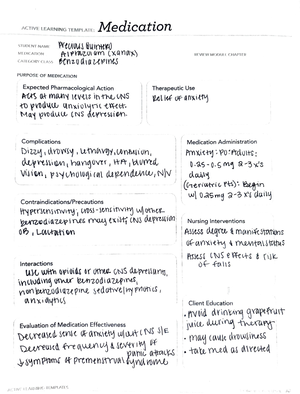 ACTIVE LEARNING TEMPLATE: Medication
STUDENT NAME Precious
MEDICATION Alprazolam (Xanax) REVIEW MODULE CHAPTER
CATEGORY CLASS Benzodiazepines
PURPOSE OF MEDICATION
Expected Pharmacological Action
Acts at many levels in the CNS
to produce anxiolytic effect.
May produce CNS depression.
Therapeutic Use
Relief of anxiety
Complications
Dizzy, drowsy, lethargy, confusion,
depression, hangover, HA, blurred
vision, psychological dependence, N/V
Medication Administration
Anxiety: PO: Adults:
0.25-0.5 mg 2-3 x's
daily
(Geriatric Pts): Begin
w/ 0.25 mg 2-3 x's daily
Contraindications/Precautions
Hypersensitivity, cross-sensitivity w/ other
benzodiazepines may exist, CNS depression
OB, Lactation
Nursing Interventions
Assess degree & manifestations
of anxiety & mental status
Assess CNS effects & risk
of falls
Interactions
Use with opioids or other CNS depressants,
including other benzodiazepines,
nonbenzodiazepine sedative/hypnotics,
anxiolytics
Client Education
• Avoid drinking grapefruit
juice during therapy
• may cause drowsiness
• take med as directed
Evaluation of Medication Effectiveness
Decreased sense of anxiety w/out CNS S/E
Decreased frequency & severity of
panic attacks
↓ symptoms of premenstrual syndrome
ACTIVE LEARNING TEMPLATES